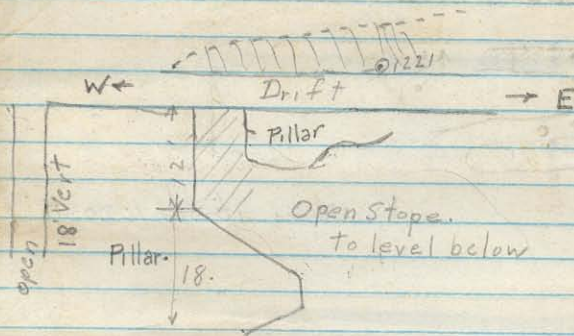 ⊙1221
W← Drift → E
Pillar
12'
18' Vert
open
Open Stope.
To level below
Pillar.
18.